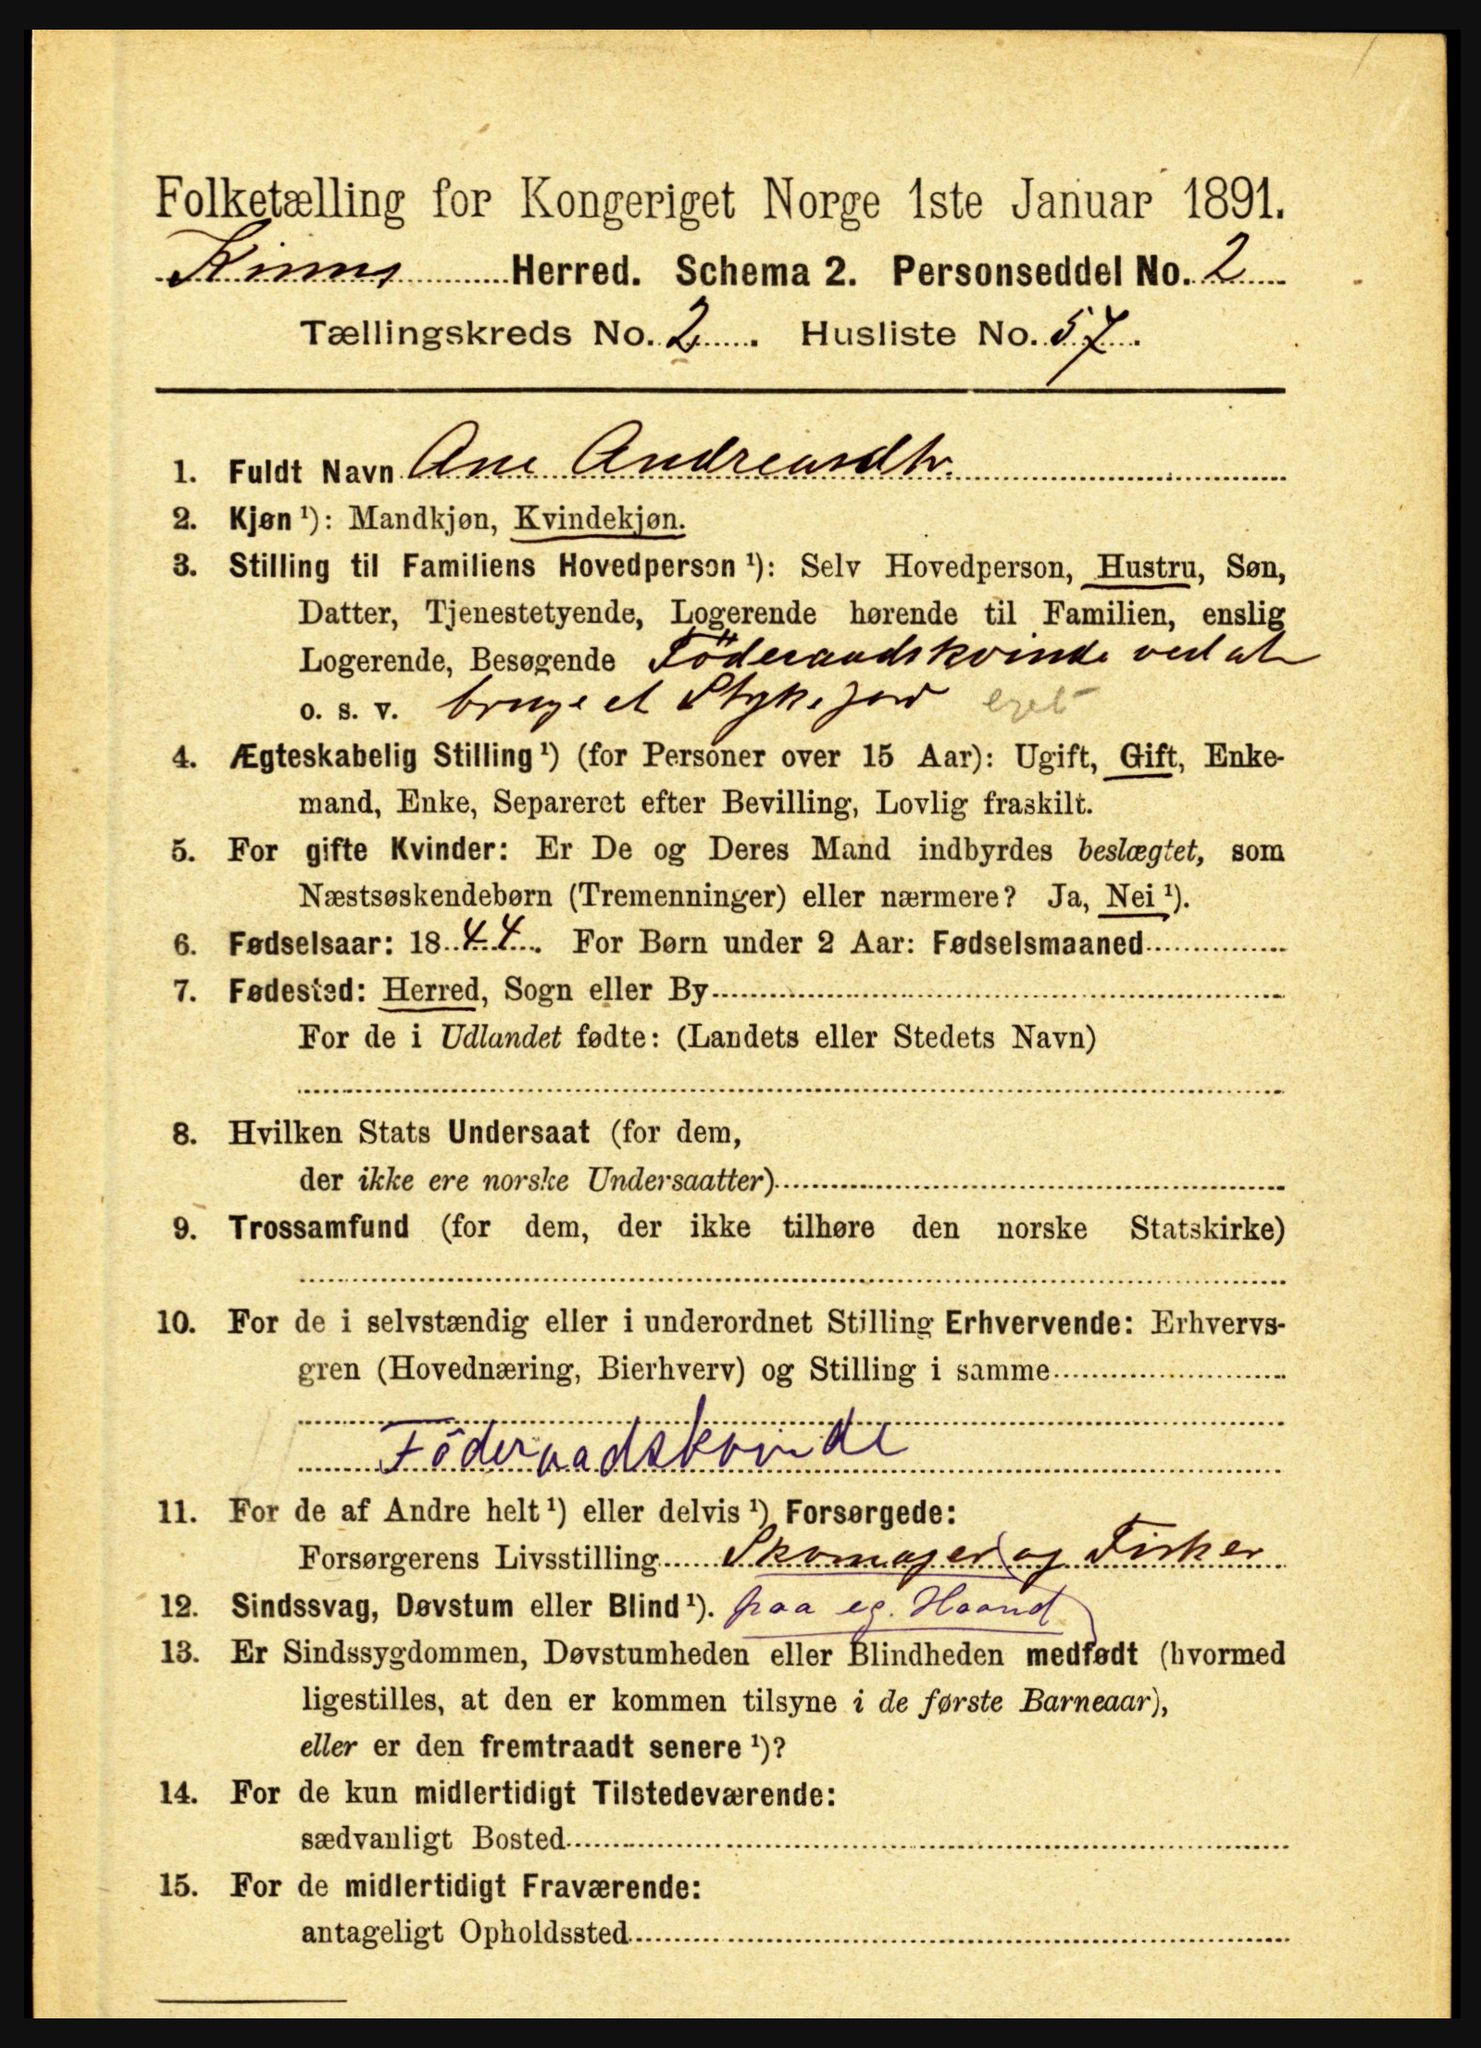 Folketælling for Kongeriget Norge 1ste Januar 1891.
Kinns Herred. Schema 2. Personseddel No. 2
Tællingskreds No. 2 . Husliste No. 57 .
1. Fuldt Navn Ane Andreasdtr.
2. Kjøn ¹): Mandkjøn, Kvindekjøn.
3. Stilling til Familiens Hovedperson ¹): Selv Hovedperson, Hustru, Søn,
Datter, Tjenestetyende, Logerende hørende til Familien, enslig
Logerende, Besøgende Föderaadskvinde ved at
o. s. v. bruge et Stykke jord eget
4. Ægteskabelig Stilling ¹) (for Personer over 15 Aar): Ugift, Gift, Enke-
mand, Enke, Separeret efter Bevilling, Lovlig fraskilt.
5. For gifte Kvinder: Er De og Deres Mand indbyrdes beslægtet, som
Næstsøskendebørn (Tremenninger) eller nærmere? Ja, Nei ¹).
6. Fødselsaar: 1844. For Børn under 2 Aar: Fødselsmaaned
7. Fødested: Herred, Sogn eller By
For de i Udlandet fødte: (Landets eller Stedets Navn)
8. Hvilken Stats Undersaat (for dem,
der ikke ere norske Undersaatter)
9. Trossamfund (for dem, der ikke tilhøre den norske Statskirke)
10. For de i selvstændig eller i underordnet Stilling Erhvervende: Erhvervs-
gren (Hovednæring, Bierhverv) og Stilling i samme
Föderaadskvinde
11. For de af Andre helt ¹) eller delvis ¹) Forsørgede:
Forsørgerens Livsstilling Skomager og Fisker
12. Sindssvag, Døvstum eller Blind ¹). paa eg. Haand
13. Er Sindssygdommen, Døvstumheden eller Blindheden medfødt (hvormed
ligestilles, at den er kommen tilsyne i de første Barneaar),
eller er den fremtraadt senere ¹)?
14. For de kun midlertidigt Tilstedeværende:
sædvanligt Bosted
15. For de midlertidigt Fraværende:
antageligt Opholdssted